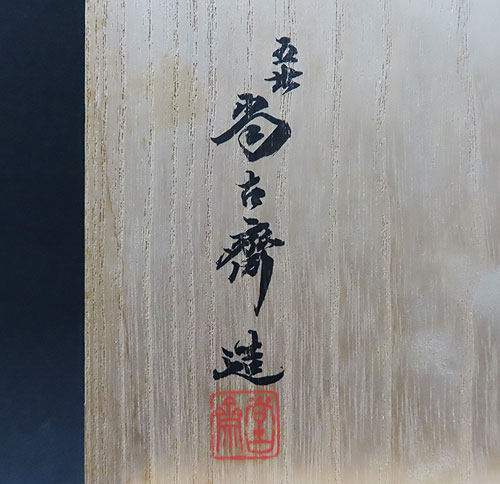 五世
尚古齋
造